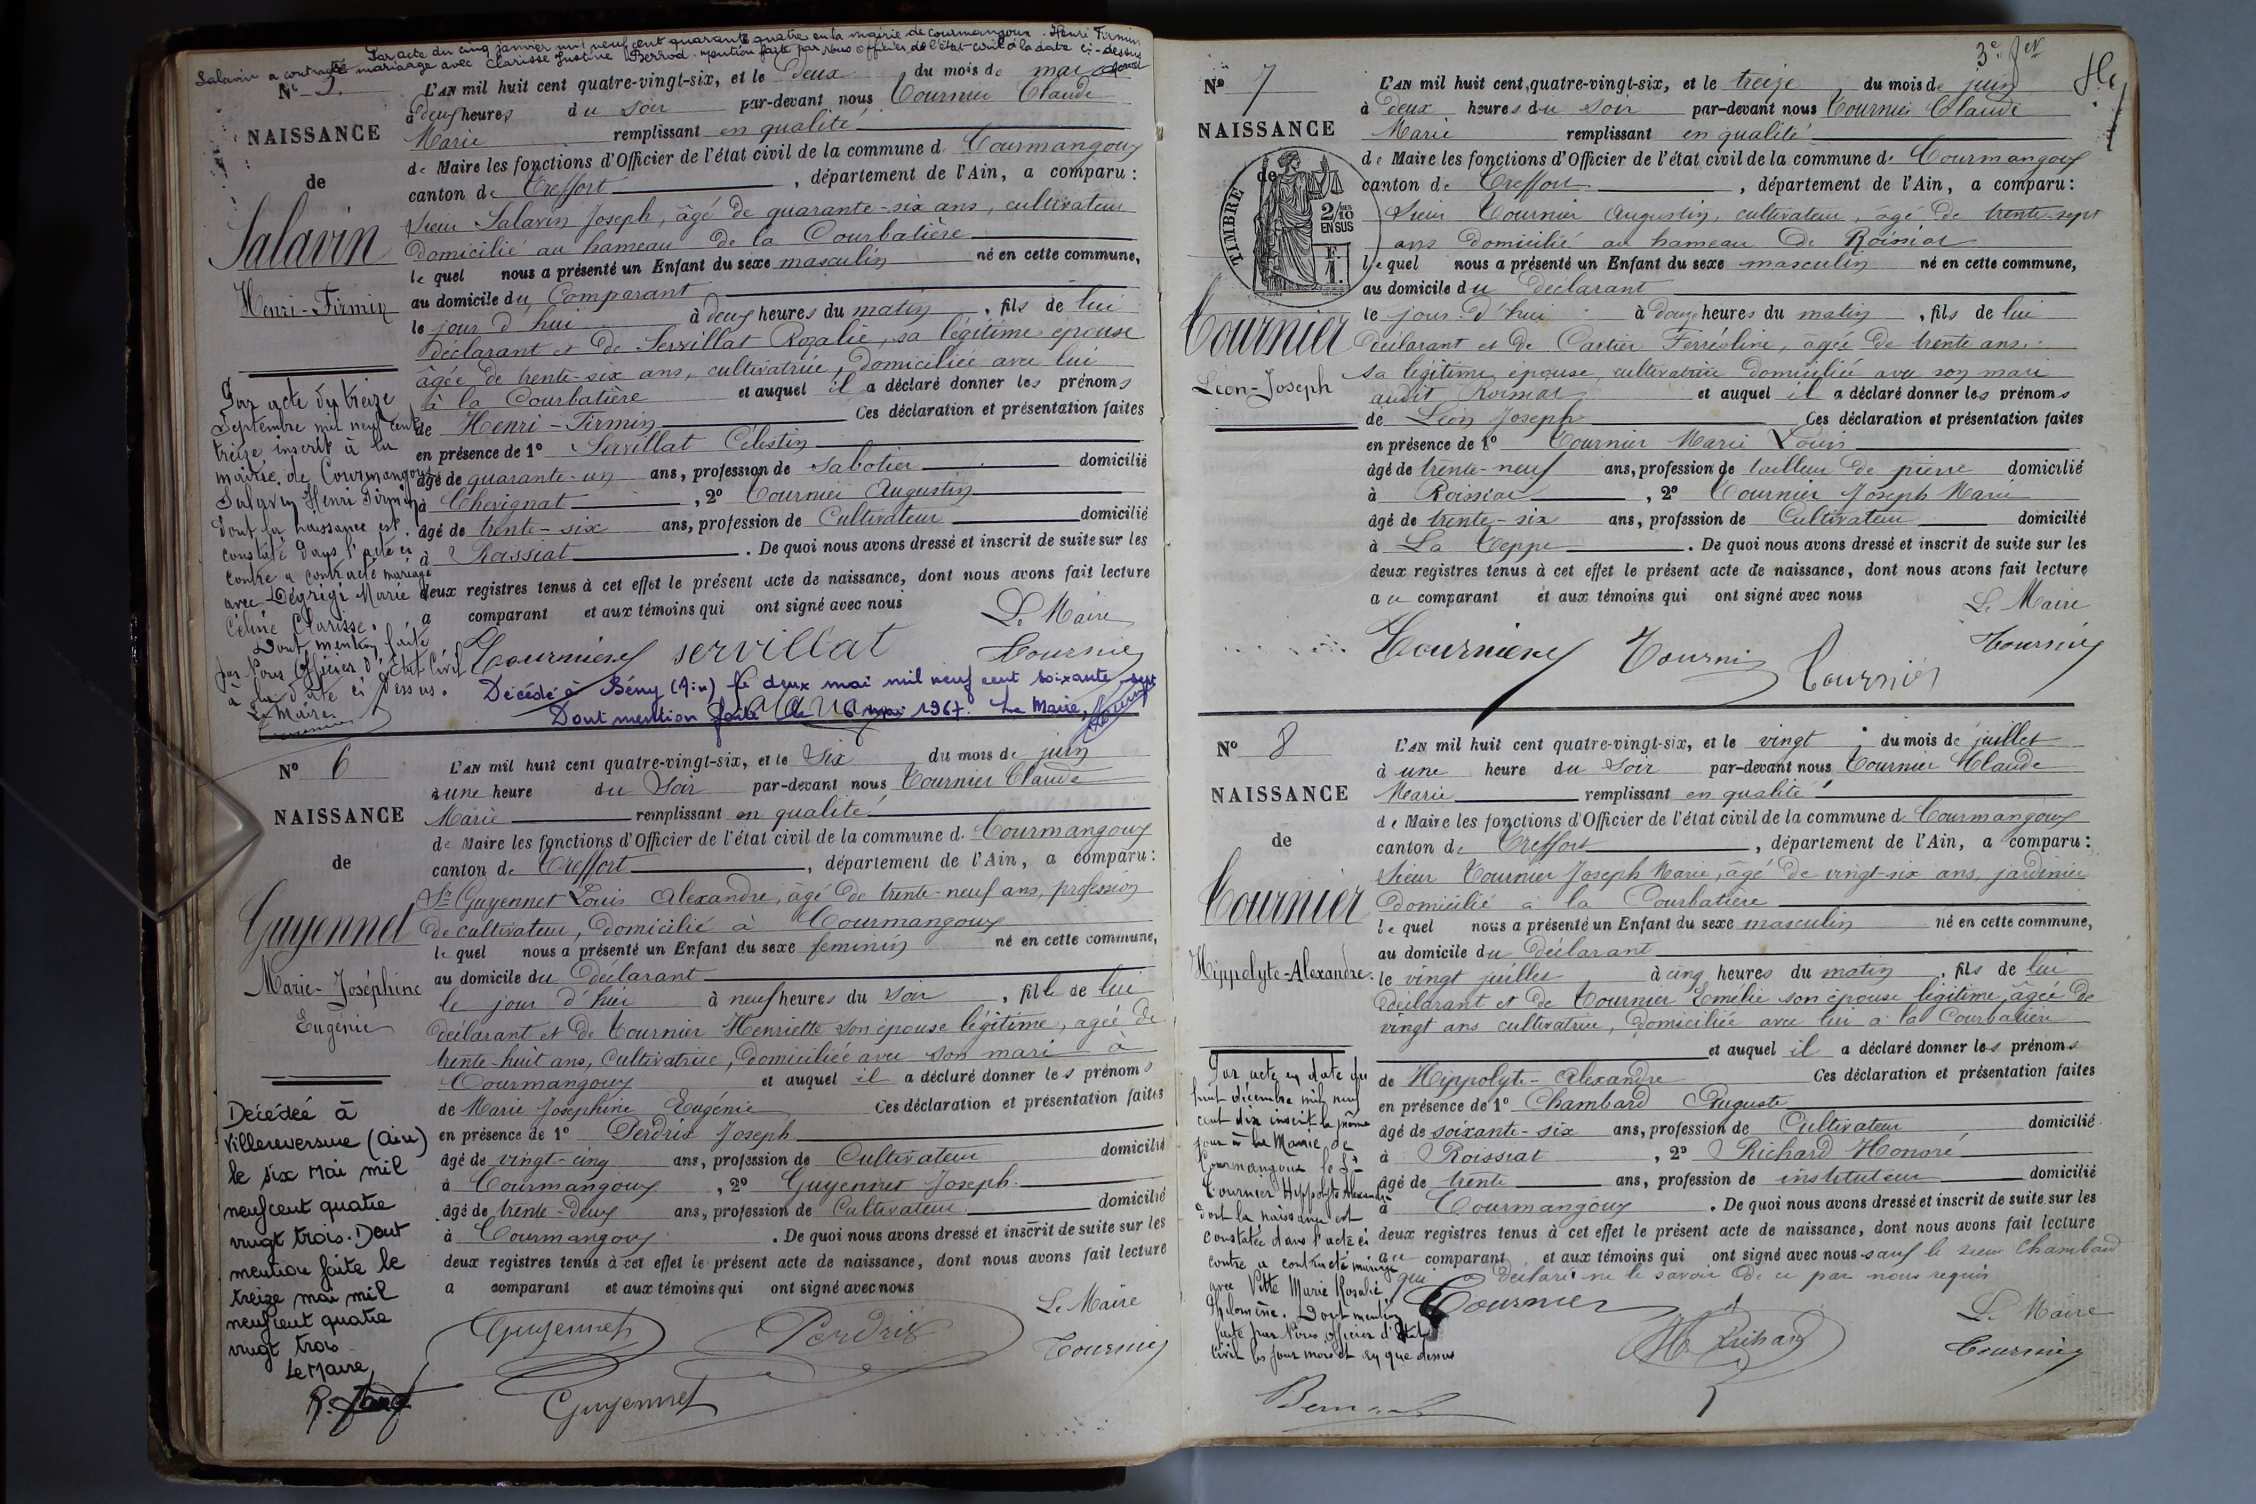 Par acte du cinq janvier mil neuf cent quarante quatre en la mairie de Courmangoux. Henri Firmin
Salavin a contracté mariage avec Clarisse Justine Perrod. mention faite par nous officier de l'état-civil à la date ci-dessus
N° 5.
NAISSANCE
de
Salavin
Henri-Firmin
L'AN mil huit cent quatre-vingt-six, et le deux du mois de mai
à deux heures du soir par-devant nous Tournier Claude
Marie remplissant en qualité
de Maire les fonctions d'Officier de l'état civil de la commune d. Courmangoux
canton de Treffort, département de l'Ain, a comparu:
Sieur Salavin Joseph, âgé de quarante-six ans, cultivateur
domicilié au hameau de la Courbatière
le quel nous a présenté un Enfant du sexe masculin né en cette commune,
au domicile du Comparant
le jour d'hui à deux heures du matin, fils de lui
déclarant et de Servillat Rozalie, sa légitime épouse
âgée de trente-six ans, cultivatrice, domiciliée avec lui
à la Courbatière et auquel il a déclaré donner les prénoms
de Henri-Firmin Ces déclaration et présentation faites
en présence de 1° Servillat Célestin
âgé de quarante-un ans, profession de sabotier domicilié
à Chevignat, 2° Tournier Augustin
âgé de trente-six ans, profession de Cultivateur domicilié
à Roissiat. De quoi nous avons dressé et inscrit de suite sur les
deux registres tenus à cet effet le présent acte de naissance, dont nous avons fait lecture
a comparant et aux témoins qui ont signé avec nous
Le Maire
Tournier servillat Tournier
Décédé à Bény (Ain) le deux mai mil neuf cent soixante-sept
Dont mention faite le 6 mai 1967. Le Maire,
Par acte du treize
Septembre mil neuf cent
treize inscrit à la
mairie de Courmangoux
Salavin Henri Firmin
dont la naissance est
constaté dans l'acte ci
contre a contracté mariage
avec Dégrigi Marie
Céline Clarisse.
Dont mention faite
par Nous Officier d'Etat Civil
à la date ci dessus.
Le Maire
N° 6
NAISSANCE
de
Guyennet
Marie-Joséphine
Eugénie
L'AN mil huit cent quatre-vingt-six, et le Six du mois de juin
à une heure du Soir par-devant nous Tournier Claude
Marie remplissant en qualité
de Maire les fonctions d'Officier de l'état civil de la commune d. Courmangoux
canton de Treffort, département de l'Ain, a comparu:
Sr Guyennet Louis Alexandre, âgé de trente-neuf ans, profession
de cultivateur, domicilié à Courmangoux
le quel nous a présenté un Enfant du sexe feminin né en cette commune,
au domicile du déclarant
le jour d'hier à neuf heures du soir, fille de lui
déclarant et de Tournier Henriette son épouse légitime, agée de
trente-huit ans, Cultivatrice, domiciliée avec son mari à
Courmangoux et auquel il a déclaré donner les prénoms
de Marie Joséphine Eugénie Ces déclaration et présentation faites
en présence de 1° Perdrix Joseph
âgé de vingt-cinq ans, profession de Cultivateur domicilié
à Courmangoux, 2° Guyennet Joseph
âgé de trente-deux ans, profession de Cultivateur domicilié
à Courmangoux. De quoi nous avons dressé et inscrit de suite sur les
deux registres tenus à cet effet le présent acte de naissance, dont nous avons fait lecture
a comparant et aux témoins qui ont signé avec nous
Le Maire
Guyennet Perdrix Tournier
Guyennet
Décédée à
Villereversure (Ain)
le six Mai mil
neufcent quatre
vingt trois. Dont
mention faite le
treize mai mil
neufcent quatre
vingt trois
Le Maire
3e fer
N° 7
NAISSANCE
de
TIMBRE
2/10 EN SUS
F. 1.
Tournier
Léon-Joseph
L'AN mil huit cent quatre-vingt-six, et le treize du mois de juin
à deux heures du soir par-devant nous Tournier Claude
Marie remplissant en qualité
de Maire les fonctions d'Officier de l'état civil de la commune d. Courmangoux
canton de Treffort, département de l'Ain, a comparu:
Sieur Tournier Augustin, cultivateur, âgé de trente-sept
ans domicilié au hameau de Roissiat
le quel nous a présenté un Enfant du sexe masculin né en cette commune,
au domicile du déclarant
le jour d'hui à douze heures du matin, fils de lui
déclarant et de Cartier Ferréoline, âgée de trente ans,
sa légitime épouse, cultivatrice domiciliée avec son mari
audit Roissiat et auquel il a déclaré donner les prénoms
de Léon Joseph Ces déclaration et présentation faites
en présence de 1° Tournier Marie Louis
âgé de trente-neuf ans, profession de tailleur de pierre domicilié
à Roissiat, 2° Tournier Joseph Marie
âgé de trente-six ans, profession de Cultivateur domicilié
à La Teppe. De quoi nous avons dressé et inscrit de suite sur les
deux registres tenus à cet effet le présent acte de naissance, dont nous avons fait lecture
au comparant et aux témoins qui ont signé avec nous
Le Maire
Tournier Tournier Tournier Tournier
N° 8
NAISSANCE
de
Tournier
Hippolyte-Alexandre.
L'AN mil huit cent quatre-vingt-six, et le vingt du mois de juillet
à une heure du soir par-devant nous Tournier Claude
Marie remplissant en qualité
de Maire les fonctions d'Officier de l'état civil de la commune d. Courmangoux
canton de Treffort, département de l'Ain, a comparu:
Sieur Tournier Joseph Marie, âgé de vingt-six ans, jardinier
domicilié à la Courbatière
le quel nous a présenté un Enfant du sexe masculin né en cette commune,
au domicile du déclarant
le vingt juillet à cinq heures du matin, fils de lui
déclarant et de Tournier Emélie son épouse légitime, âgée de
vingt ans cultivatrice, domiciliée avec lui à la Courbatière
et auquel il a déclaré donner les prénoms
de Hippolyte-Alexandre Ces déclaration et présentation faites
en présence de 1° Chambard Auguste
âgé de soixante-six ans, profession de Cultivateur domicilié
à Roissiat, 2° Richard Honoré
âgé de trente ans, profession de instituteur domicilié
à Courmangoux. De quoi nous avons dressé et inscrit de suite sur les
deux registres tenus à cet effet le présent acte de naissance, dont nous avons fait lecture
au comparant et aux témoins qui ont signé avec nous sauf le sieur Chambard
qui a déclaré ne le savoir de ce par nous requis
Tournier Le Maire
H. Richard Tournier
Par acte en date du
huit décembre mil neuf
cent dix inscrit le même
jour à la Mairie de
Courmangoux le Sr
Tournier Hippolyte Alexandre
dont la naissance est
constatée dans l'acte ci
contre a contracté mariage
avec Vitte Marie Rosalie
Philomène. Dont mention
faite par Nous officier d'Etat
Civil les jour mois et an que dessus